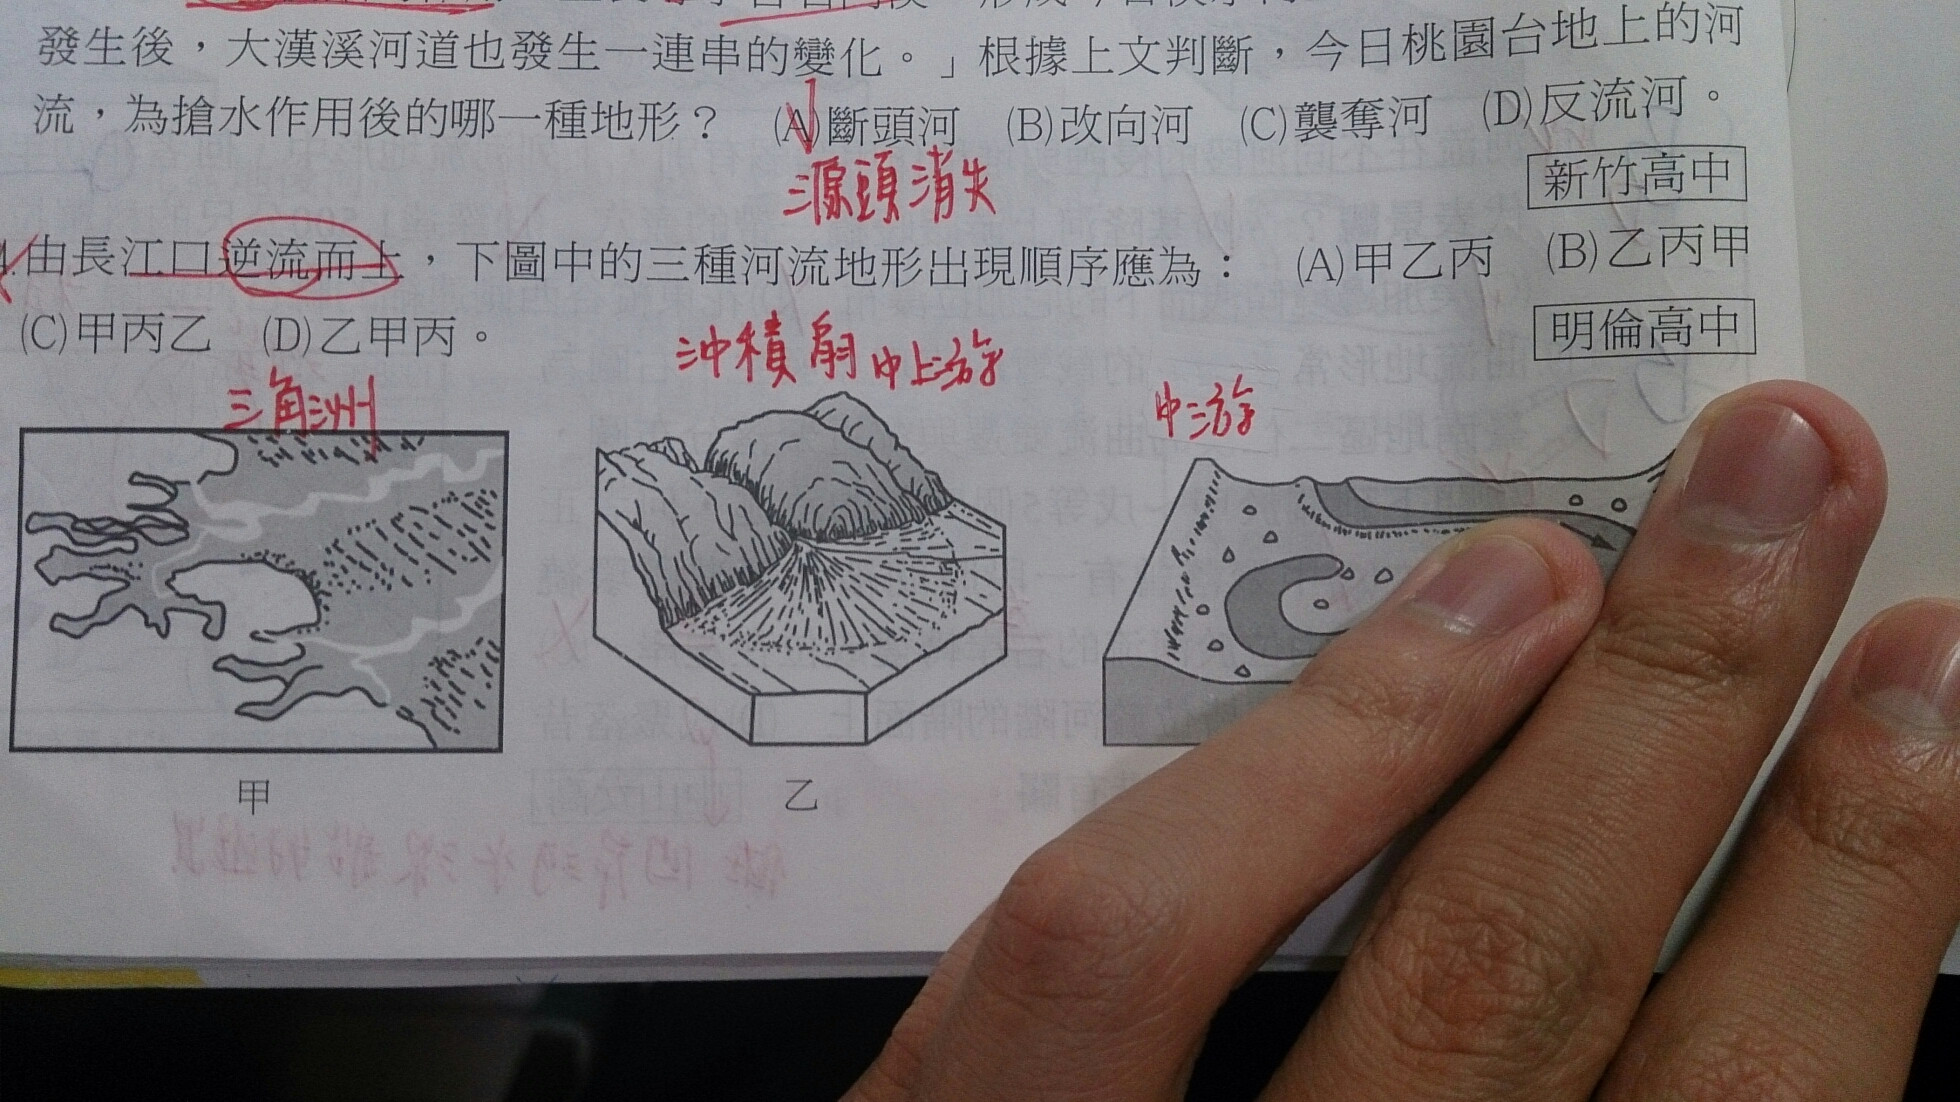 發生後，大漢溪河道也發生一連串的變化。」根據上文判斷，今日桃園台地上的河
流，為搶水作用後的哪一種地形？ (A)斷頭河 (B)改向河 (C)襲奪河 (D)反流河。
新竹高中
源頭消失
4.由長江口逆流而上，下圖中的三種河流地形出現順序應為： (A)甲乙丙 (B)乙丙甲
(C)甲丙乙 (D)乙甲丙。
明倫高中
三角洲
沖積扇 中上游
中游
甲
乙